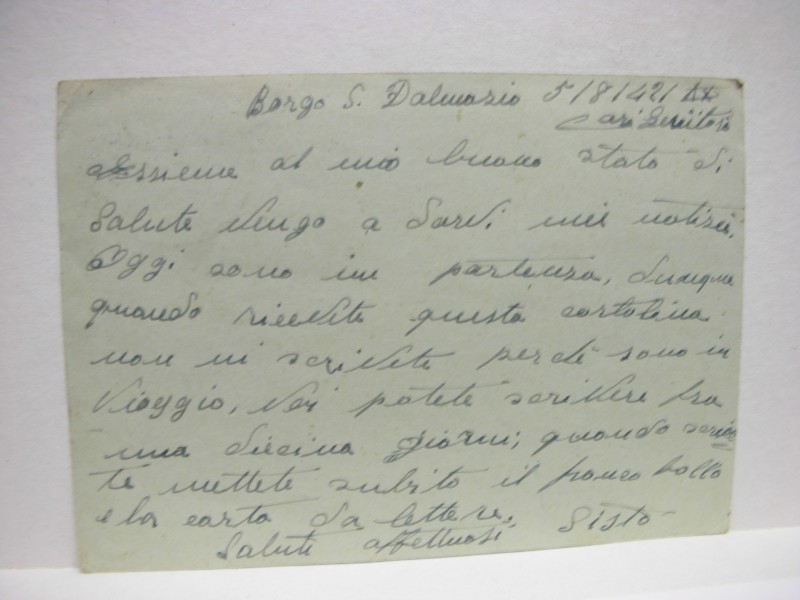 Borgo S. Dalmazio 5/8/42/ XX
Cari Genitori
Assieme al mio buono stato di
salute vengo a darvi mie notizie.
Oggi sono in partenza, dunque
quando ricevete questa cartolina
non mi scrivete perchè sono in
viaggio, voi potete scrivere fra
una diecina giorni, quando scrive
te mettete subito il franco bollo
e la carta da lettere.
Saluti affettuosi Sisto